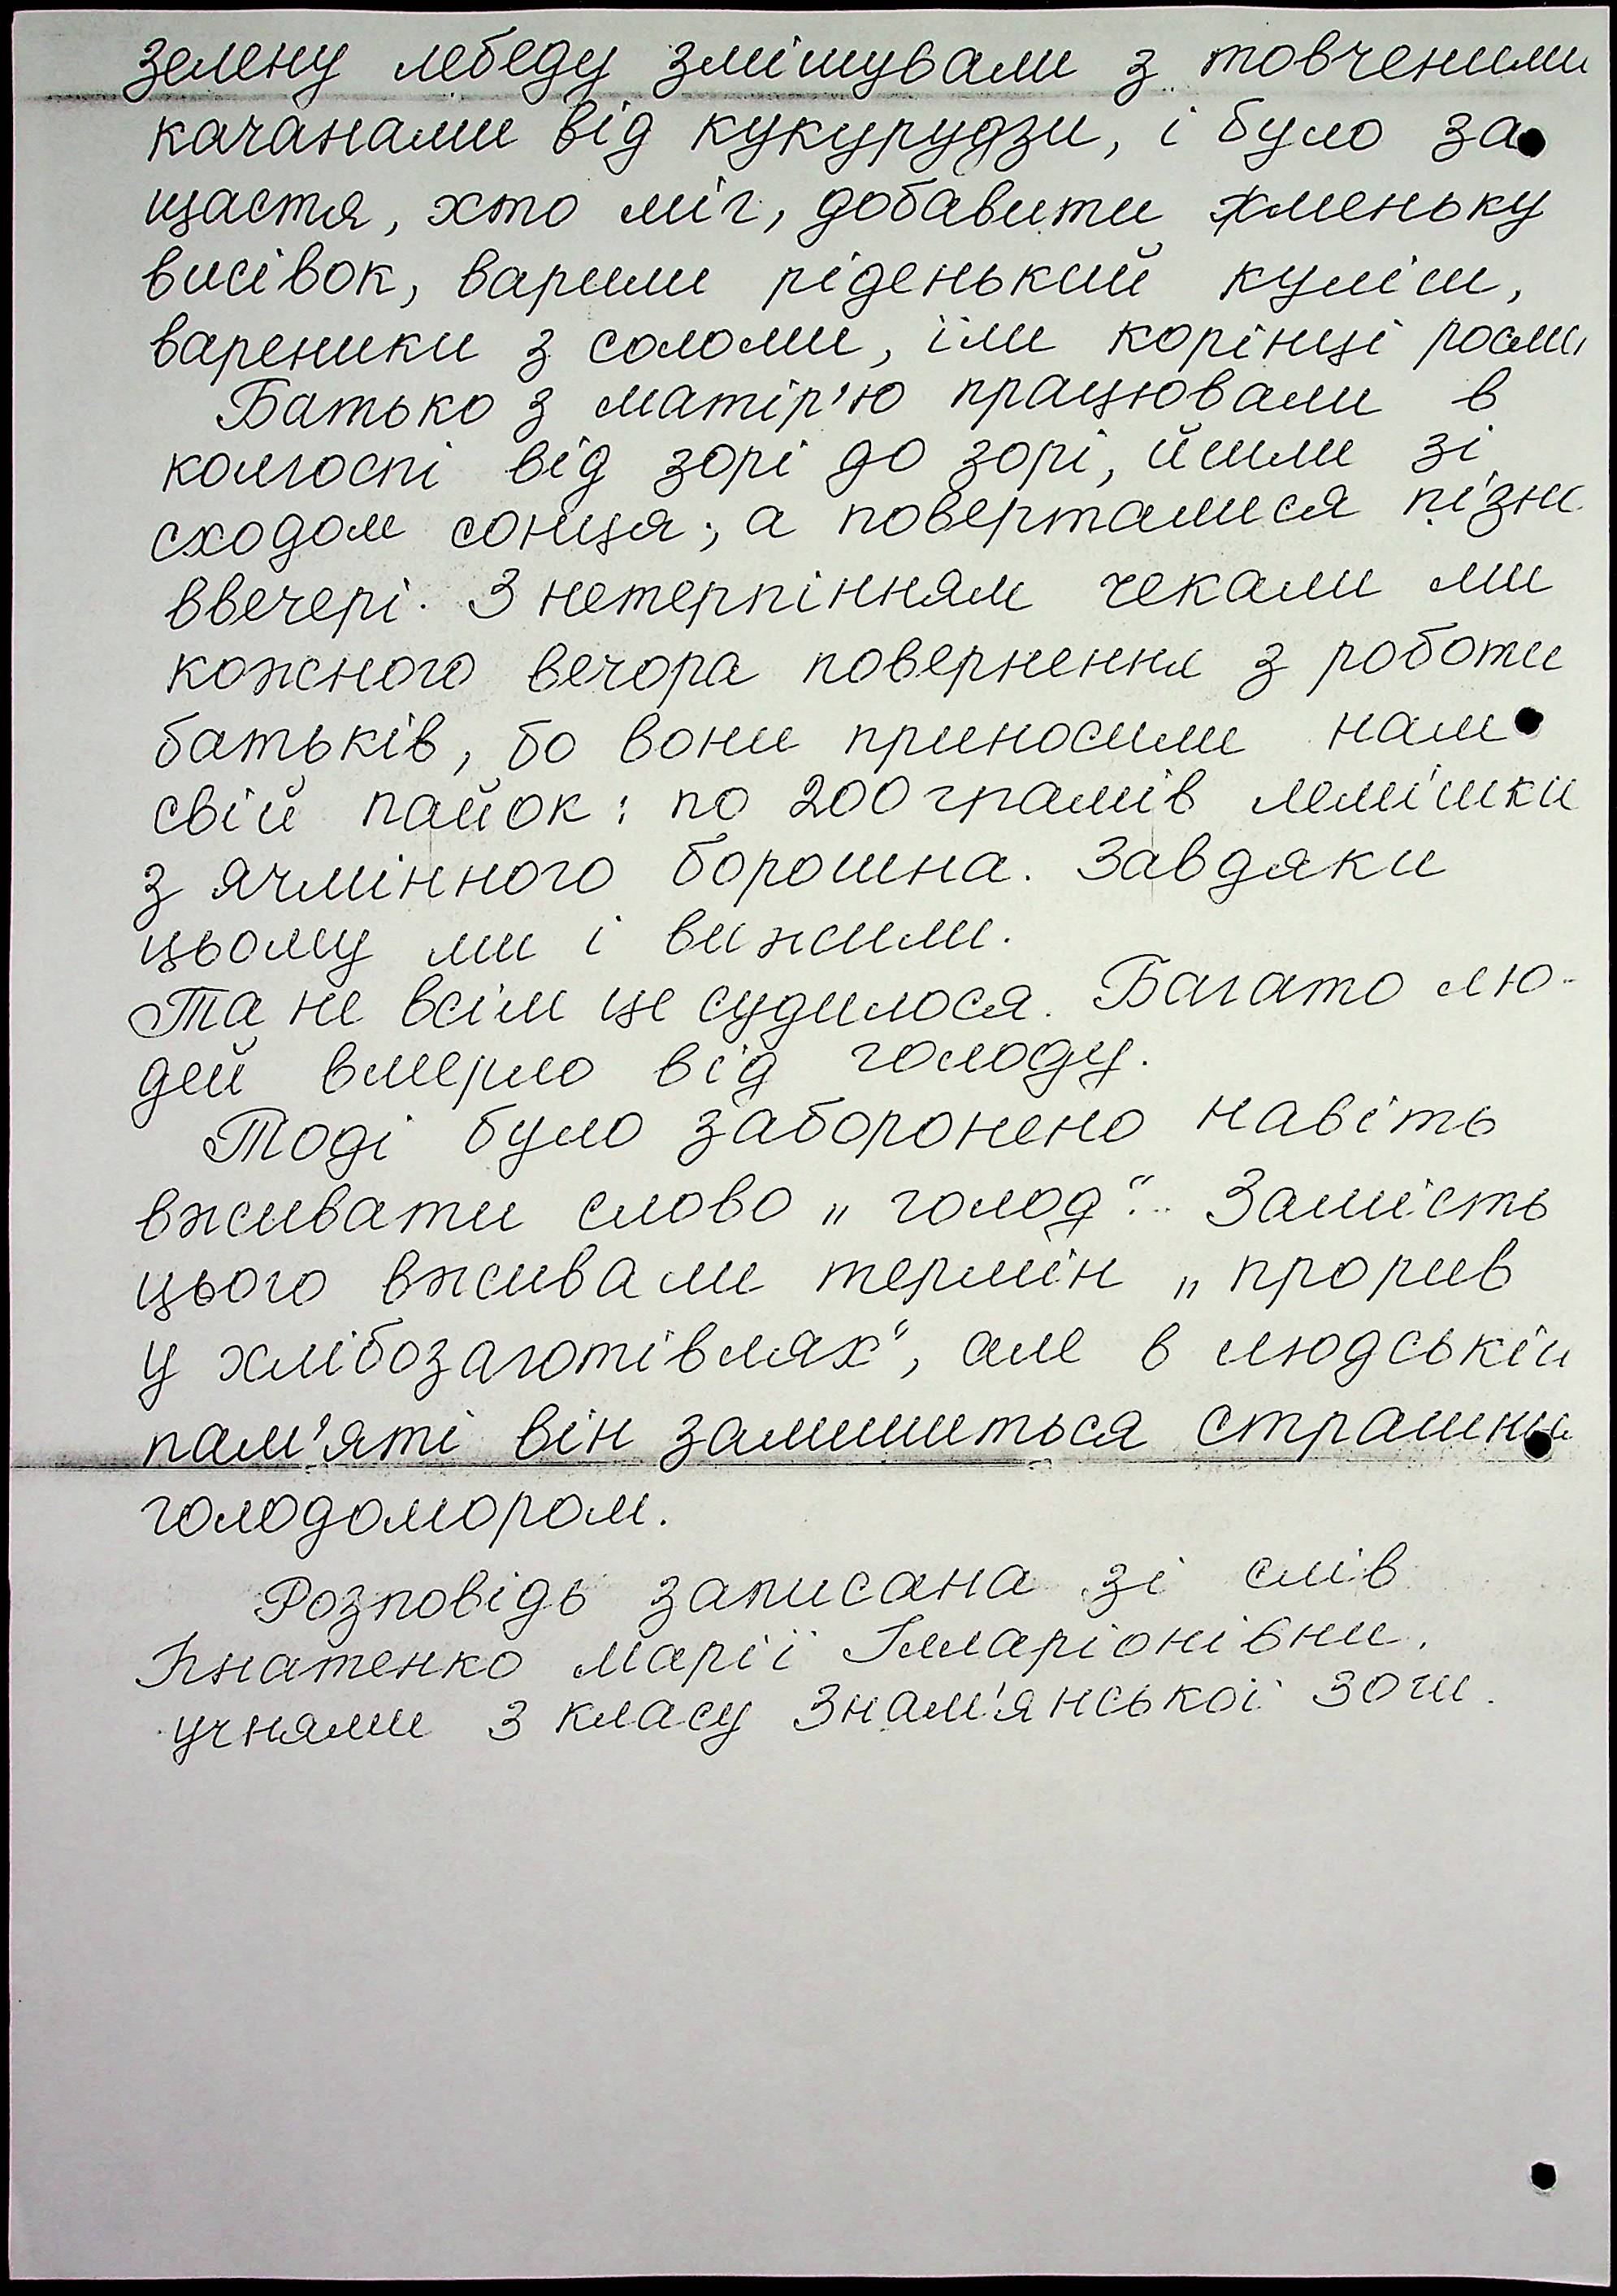 зелену лебеду змішували з товченими
качанами від кукурудзи, і було за
щастя, хто міг, добавити жменьку
висівок, варили ріденький куліш,
вареники з соломи, їли корінці
Батько з матір'ю працювали в
колгоспі від зорі до зорі, йшли зі
сходом сонця; а поверталися пізно
ввечері. З нетерпінням чекали ми
кожного вечора повернення з роботи
батьків, бо вони приносили нам
свій пайок: по 200 грамів лемішки
з ячмінного борошна. Завдяки
цьому ми і вижили.
Та не всім це судилося. Багато лю-
дей вмерло від голоду.
Тоді було заборонено навіть
вживати слово „голод“. Замість
цього вживали термін „прорив
у хлібозаготівлях“, але в людській
пам'яті він залишиться страшним
голодомором.
Розповідь записана зі слів
Ігнатенко Марії Ілларіонівни.
учнями 3 класу Знам'янської ЗОШ.